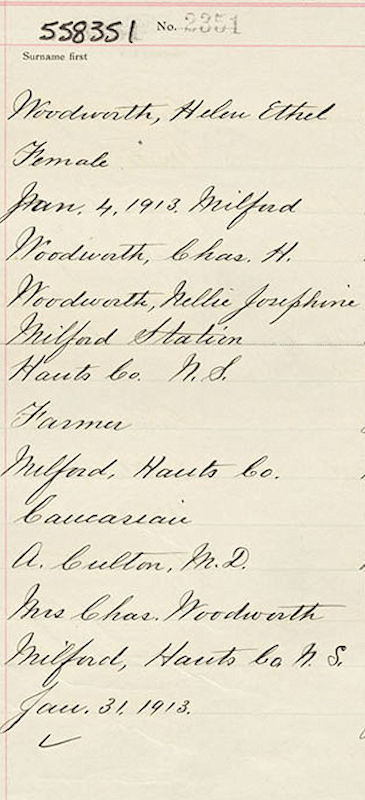 558351 No. 2351
Surname first
Woodworth, Helen Ethel
Female
Jan. 4, 1913. Milford
Woodworth, Chas. H.
Woodworth, Nellie Josephine
Milford Station
Hants Co. N.S.
Farmer
Milford, Hants Co.
Caucasian
A. Culton, M.D.
Mrs Chas. Woodworth
Milford, Hants Co N.S.
Jan. 31. 1913.
✓